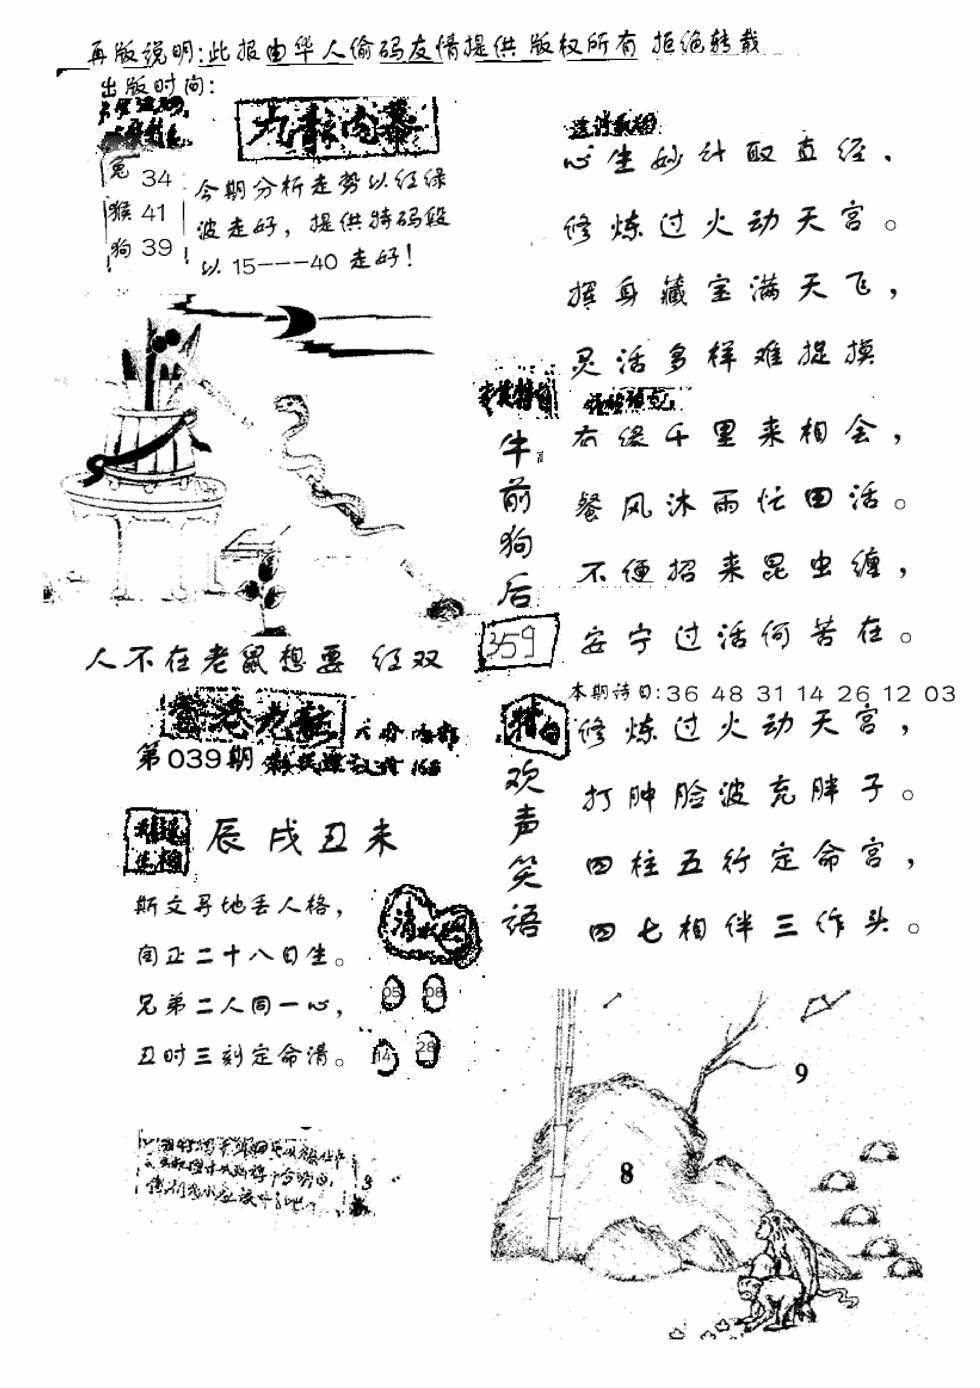 再版说明:此报由华人偷码友情提供 版权所有 拒绝转载
出版时间:
九龙内幕
兔 34
猴 41
狗 39
今期分析走势以红绿
波走好，提供特码段
以 15---40 走好!
心生妙计取直径，
修炼过火动天宫。
挥身藏宝满天飞，
灵活多样难捉摸
有缘千里来相会，
餐风沐雨忙田活。
不便招来昆虫缠，
安宁过活何苦在。
牛前狗后
359
人不在老鼠想要 红双
本期诗日:36 48 31 14 26 12 03
香港九龙
第039期
168
修炼过火动天宫，
打肿脸皮充胖子。
四柱五行定命宫，
四七相伴三作头。
特句
欢声笑语
辰戌丑未
斯文寻地丢人格，
闰正二十八日生。
兄弟二人同一心，
丑时三刻定命清。
05 08
14 28
8
9